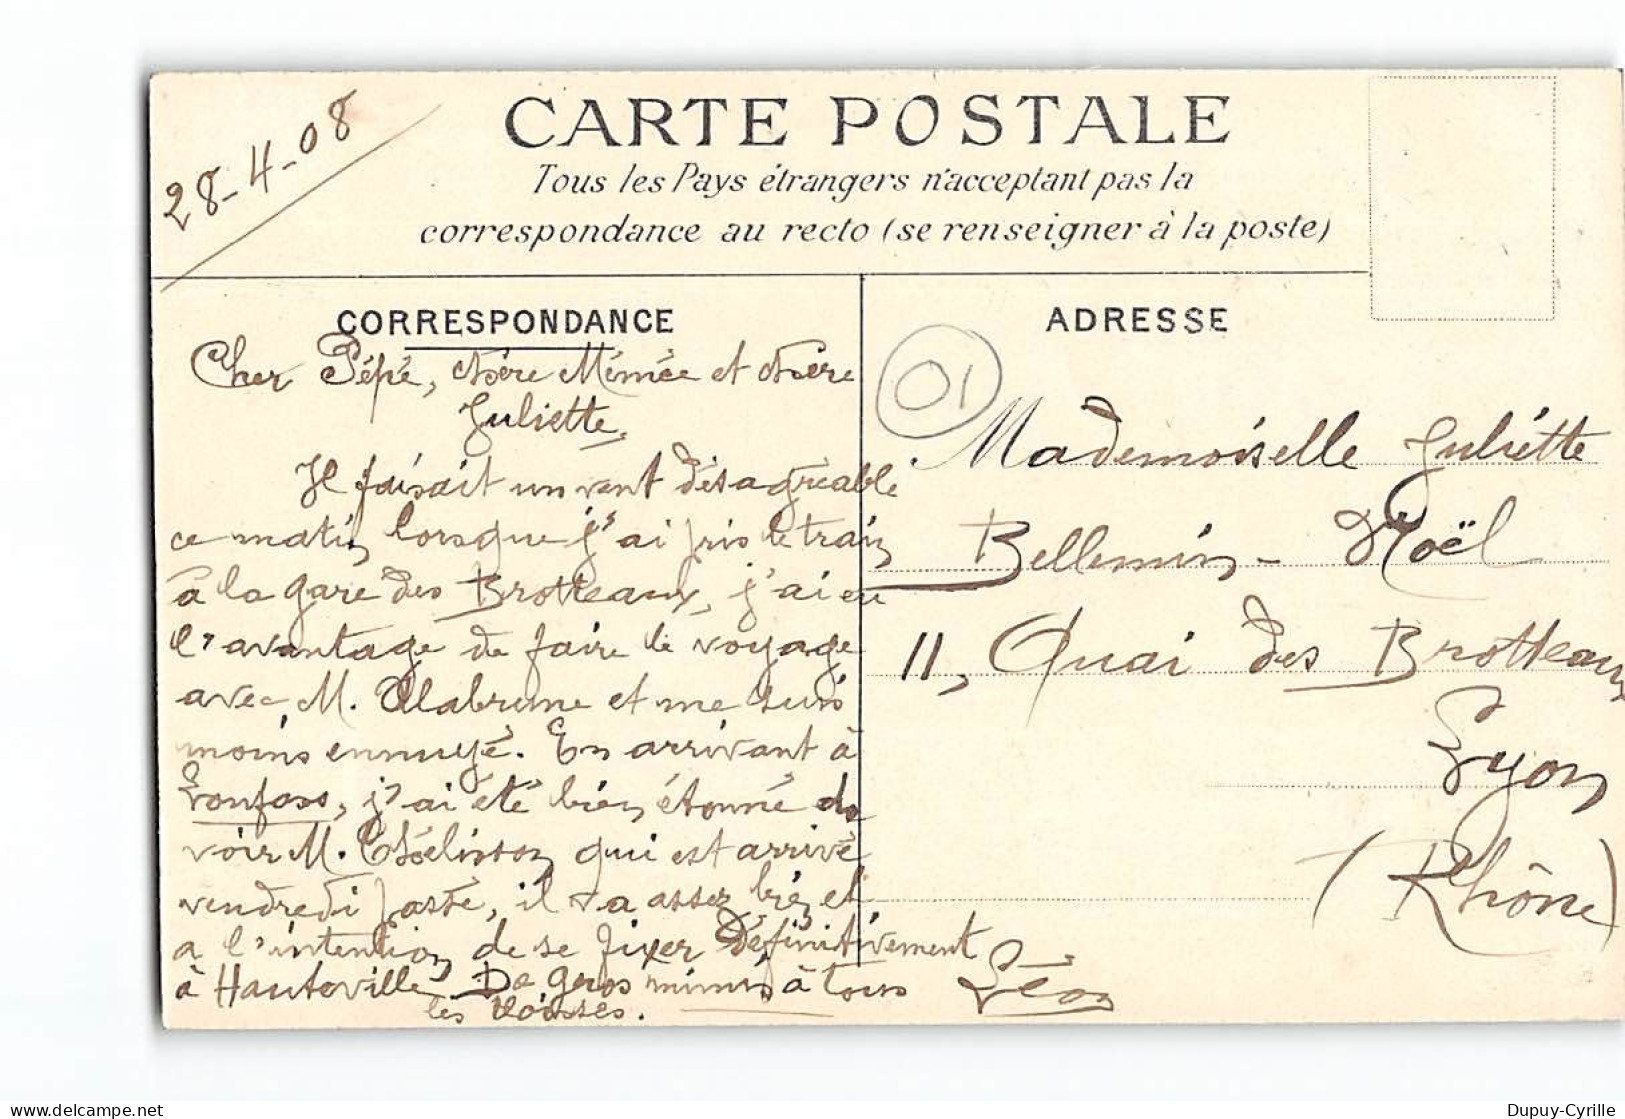 28-4-08
CARTE POSTALE
Tous les Pays étrangers n'acceptant pas la
correspondance au recto (se renseigner à la poste)
CORRESPONDANCE
Cher Pépé, chère Mémée et chère
Juliette,
Il faisait un vent désagréable
ce matin lorsque j'ai pris le train
à la gare des Brotteaux, j'ai eu
l'avantage de faire le voyage
avec M. Alabrune et me suis
moins ennuyé. En arrivant à
j'ai été bien étonné de
voir M. qui est arrivé
vendredi passé, il va assez bien et
a l'intention de se fixer définitivement
à Hauteville. De gros mimis à tous
les
Léon
ADRESSE
01
Mademoiselle Juliette
Bellemin-Noël
11, Quai des Brotteaux
Lyon
(Rhône)
delcampe.net
Dupuy-Cyrille